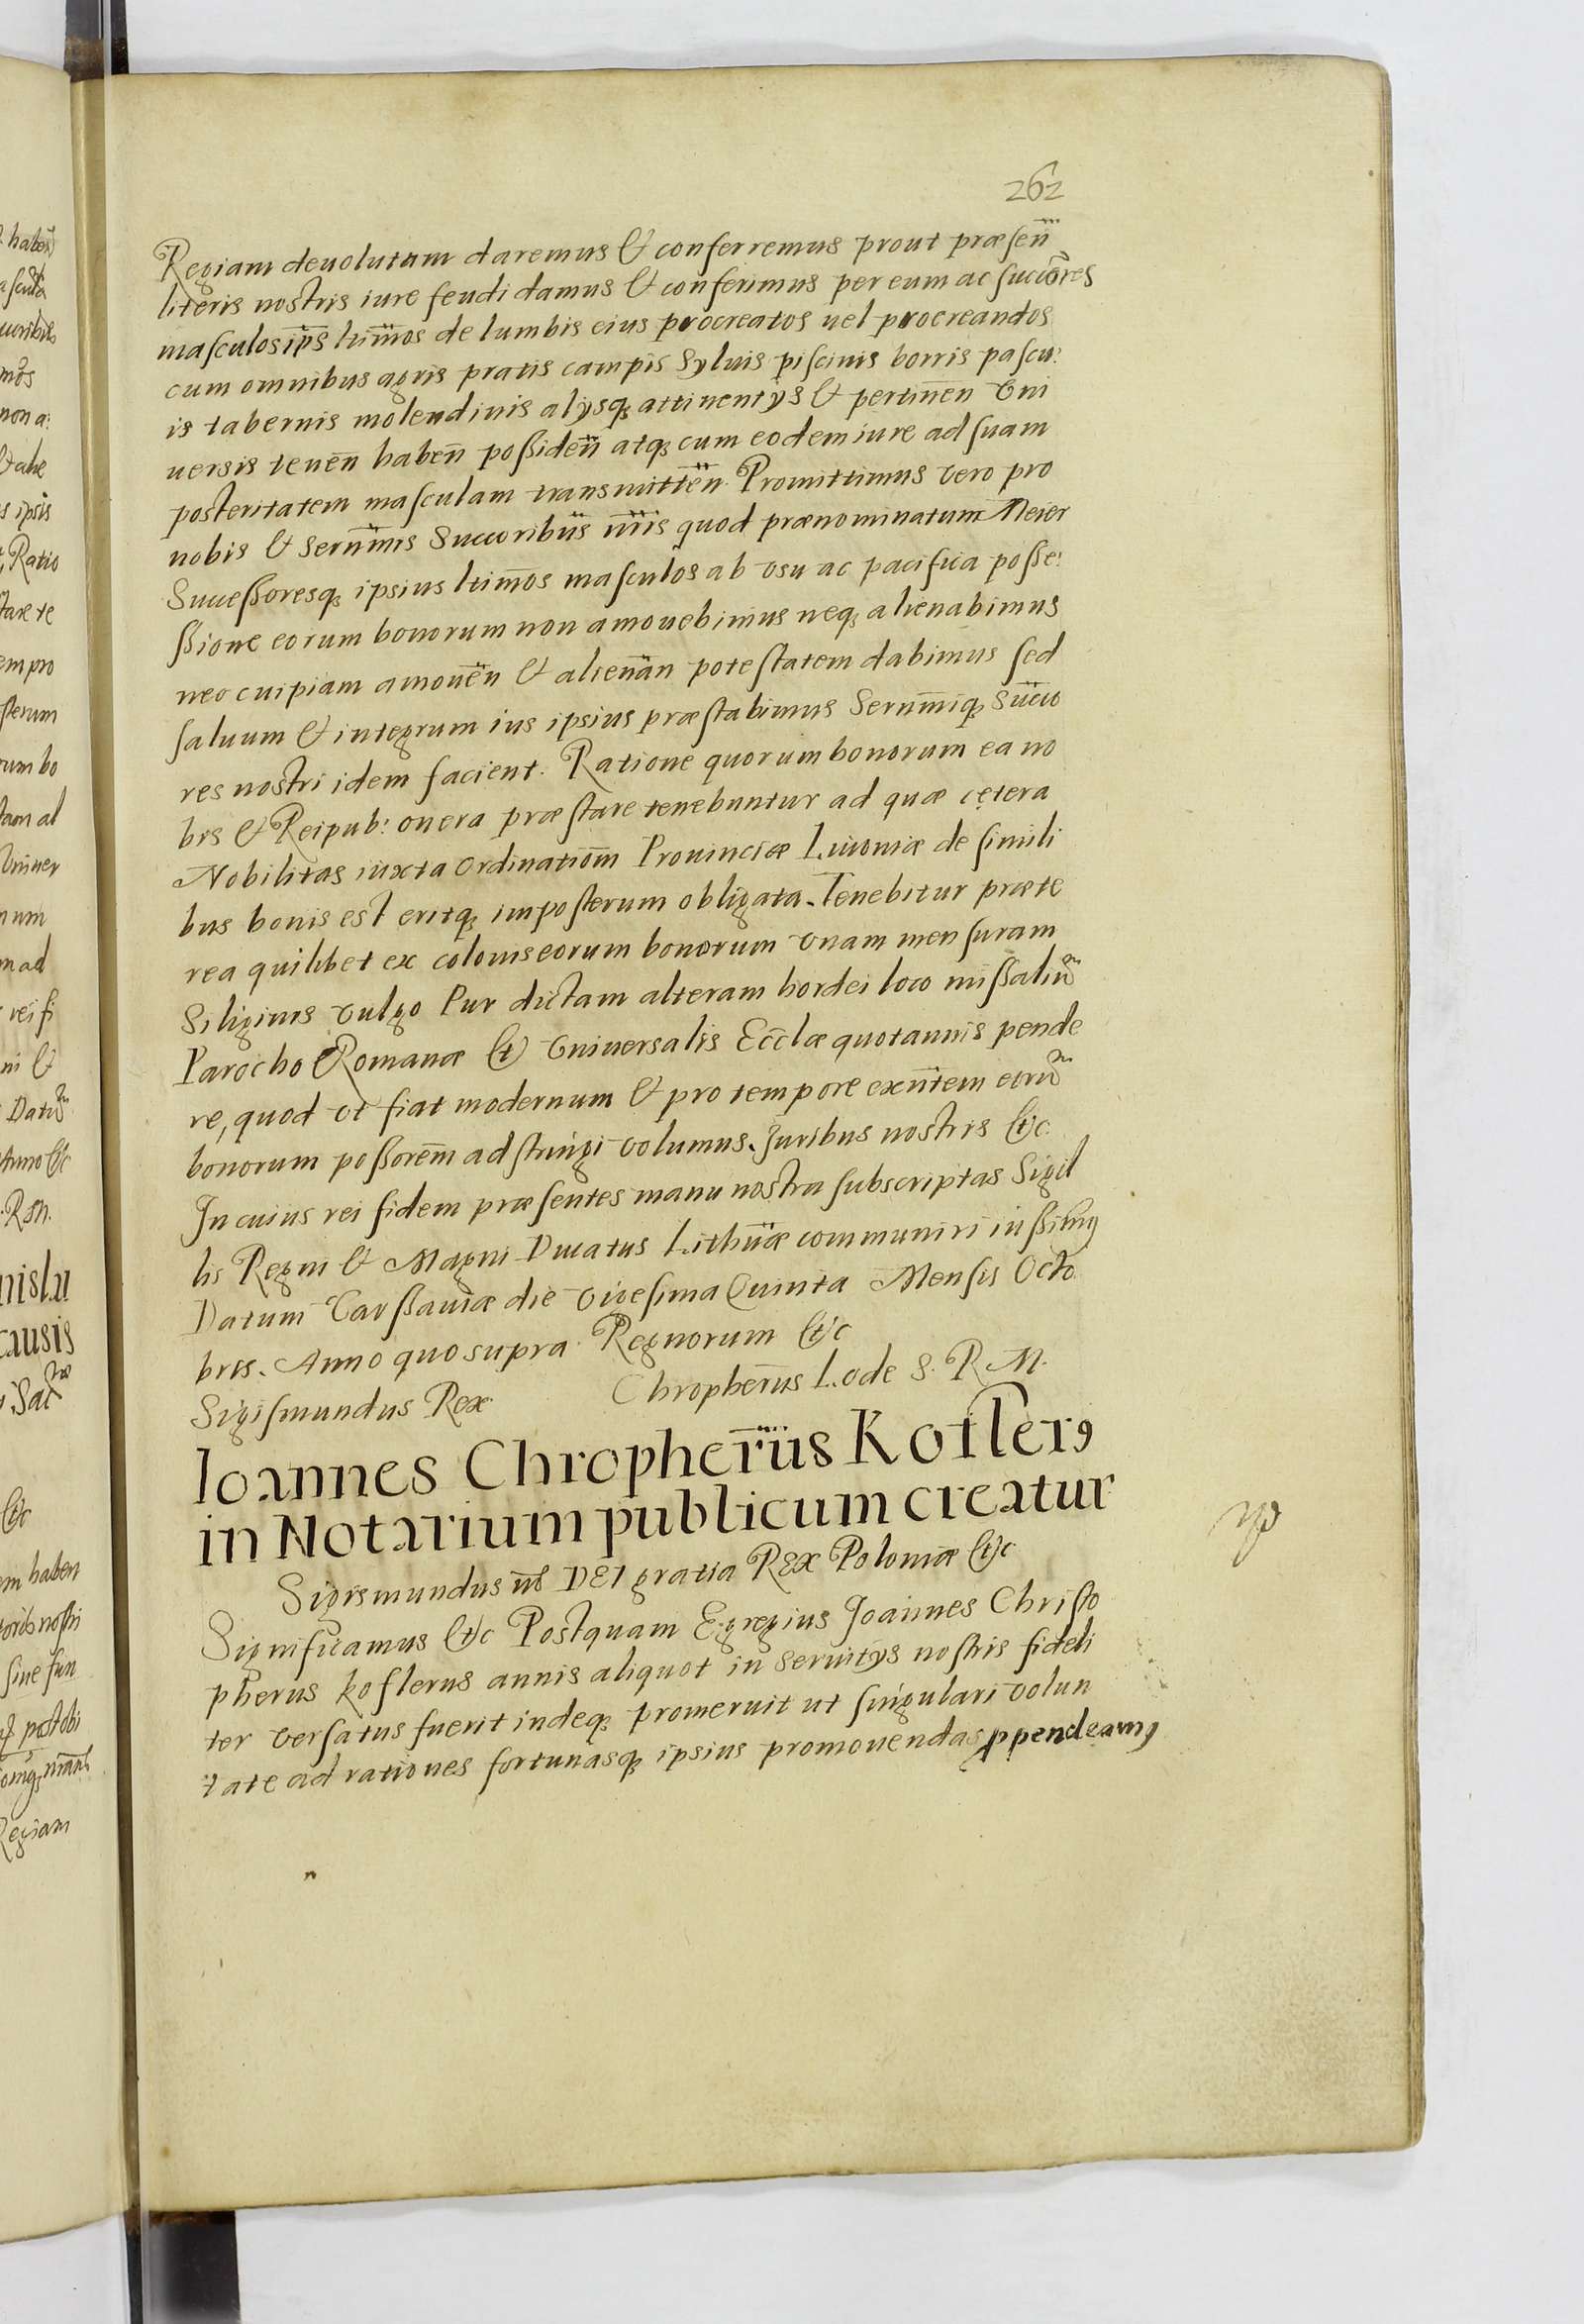 262
Regiam deuolutam daremus & conferremus prout præsen̄
literis nostris iure feudi damus & conferimus per eum ac succōres
masculos ip̄s ltimōs de lumbis eius procreatos uel procreandos
cum omnibus agris pratis campis syluis piscinis borris pascu:
is tabernis molendinis alijsq attinentijs & pertinen̄ vni
uersis tenen̄ haben̄ possiden̄ atq cum eodem iure ad suam
posteritatem masculam transmitten̄ Promittimus vero pro
nobis & Serenmis̄ Succoribus̄ nr̄is quod prænominatum Meier
Successoresq ipsius ltimōs masculos ab vsu ac pacifica posse:
ssione eorum bonorum non amouebimus neq alienabimus
nec cuipiam amouen̄ & alienan̄ potestatem dabimus sed
saluum & integrum ius ipsius præstabimus Serenmiq̄ Succo
res nostri idem facient. Ratione quorum bonorum ea no
bis & Reipub: onera præstare tenebuntur ad quæ cętera
Nobilitas iuxta ordinatiōm Prouinciæ Liuoniæ de simili
bus bonis est eritq imposterum obligata. Tenebitur præte
rea quilibet ex colonis eorum bonorum vnam mensuram
Siliginis vulgo Pur dictam alteram hordei loco missaliu̅
Parocho Romanæ &c vniuersalis Eccl̄æ quotannis pende
re, quod vt fiat modernum & pro tempore exn̄tem eoru̅
bonorum possorem̄ adstringi volumus. Juribus nostris &c.
In cuius rei fidem præsentes manu nostra subscriptas Sigil
lis Regni & Magni Ducatus Lithuǣ communiri iussimꝰ
Datum Varssauiæ die vigesima Quinta Mensis Octo
bris. Anno quo supra. Regnorum &c
Sigismundus Rex. Chropherūs Lode S. R M.
Ioannes Chropherūs Koflerꝰ
in Notarium publicum creatur
Sigismundus III DEI gratia REX Poloniæ &c
Significamus &c Postquam Egregius Joannes Christo
pherus Koflerus annis aliquot in seruitijs nostris fideli
ter versatus fuerit indeq promeruit ut singulari volun
tate ad rationes fortunasq ipsius promouendas ꝓpendeamꝰ